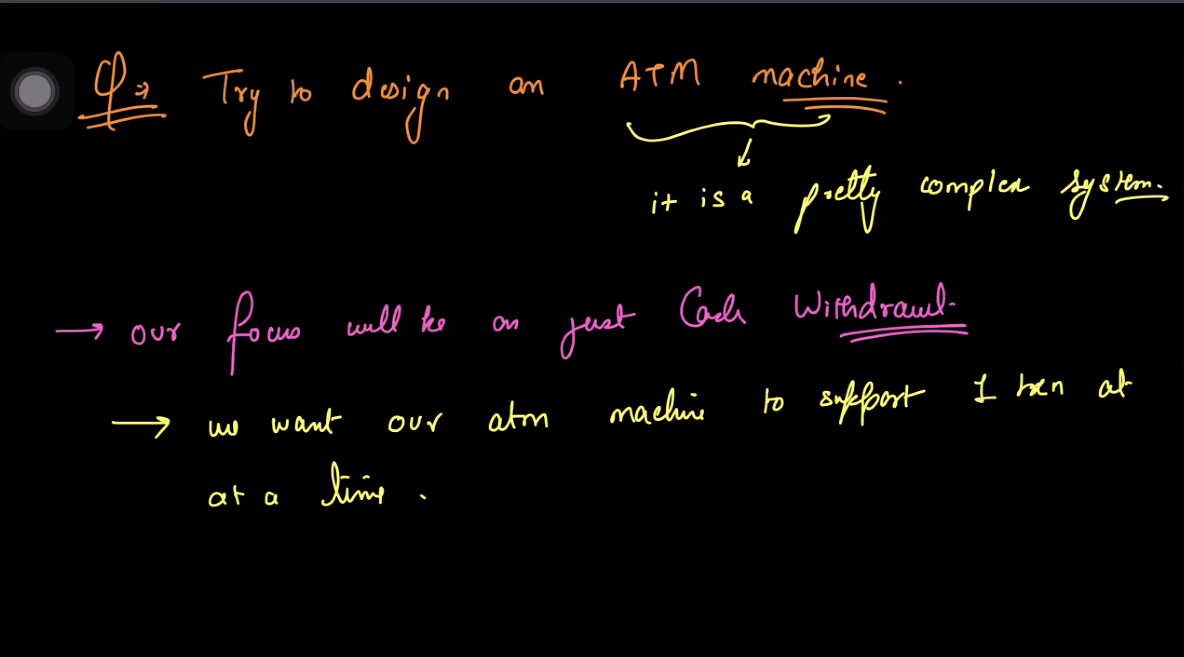 Q→ Try to design an ATM machine.
it is a pretty complex system.
→ our focus will be on just Cash Withdrawl.
→ we want our atm machine to support 1 txn at
at a time.